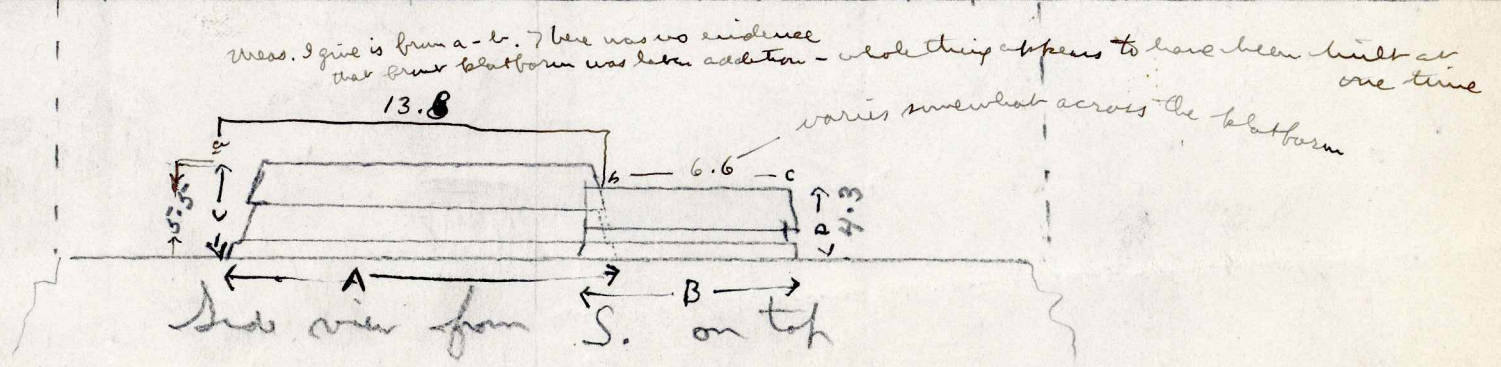 Meas. I give is from a-b. There was no evidence
that front platform was later addition - whole thing appears to have been built at
one time
13.8
varies somewhat across the platform
a
b — 6.6 — c
5.5
C
D
4.3
A
B
Side view from S. on top